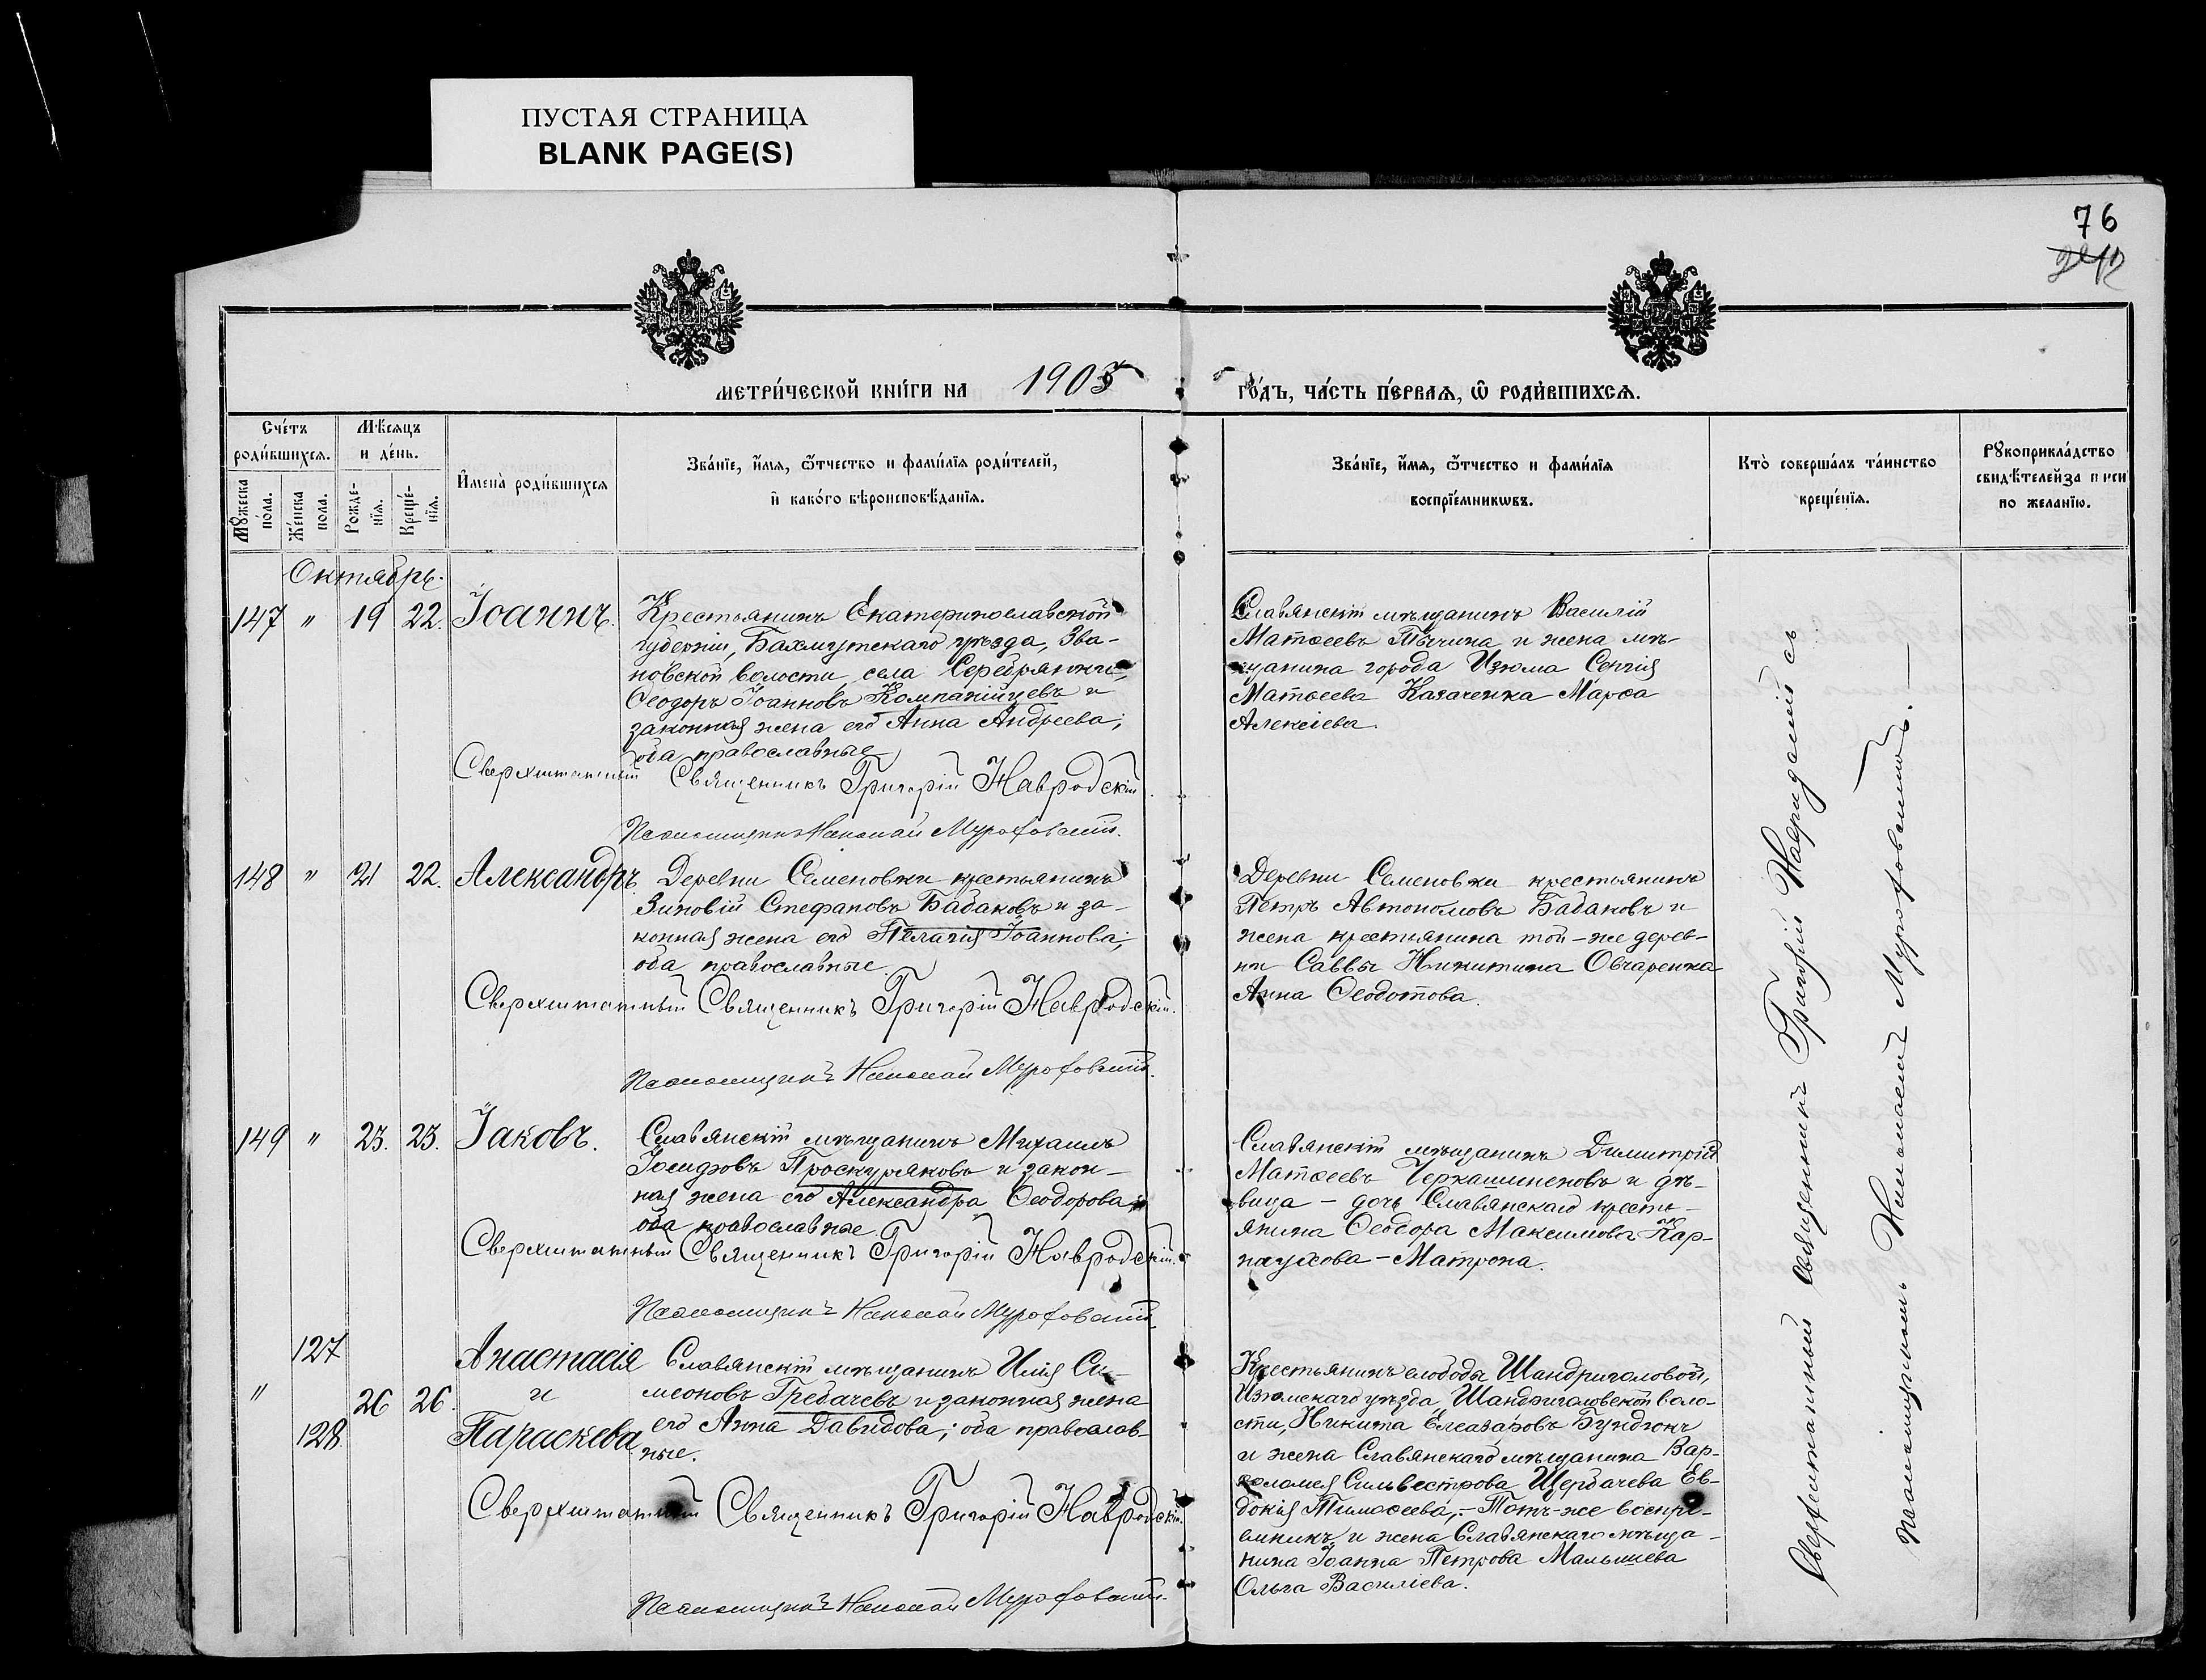 ПУСТАЯ СТРАНИЦА
BLANK PAGE(S)
76
метри́ческой кни́ги на 1903
го́дъ, ча́сть пе́рваѧ, ѡ҆ роди́вшихсѧ.
Сче́тъ
роди́вшихсѧ.
Мѣ́сѧцъ
и де́нь.
Мꙋ́жеска
по́ла.
Же́нска
по́ла.
Рожде-
нїѧ.
Креще́-
нїѧ.
И҆мена̀ роди́вшихсѧ
Зва́нїе, и҆́мѧ, ѻ҆́тчество и фами́лїѧ роди́телей,
и҆ како́го вѣроисповѣ́данїѧ.
Зва́нїе, и҆́мѧ, ѻ҆́тчество и фами́лїѧ
воспрїе́мникѡвъ.
Кто̀ соверша́лъ та́инство
креще́нїѧ.
Рꙋкоприкла́дство
свидѣ́телей записи
по жела́нїю.
Октябрь.
147 " 19 22. Іоаннъ.
Крестьянинъ Екатеринославской
губерніи, Бахмутскаго уѣзда, Зва-
новской волости, села Серебрянки,
Ѳеодоръ Іоанновъ Компанійцевъ и
законная жена его Анна Андреева;
оба православные
Сверхштатный Священникъ Григорій Навродскій.
Псаломщикъ Николай
Славянскій мѣщанинъ Василій
Матѳеевъ и жена мѣ-
щанина города Изюма Сергія
Матѳеева Казаченка Марѳа
Алексіева.
148 " 21 22. Александръ
Деревни Семеновки крестьянинъ
Зиновій Стефановъ Бабаковъ и за-
конная жена его Пелагія Іоаннова;
оба православные.
Сверхштатный Священникъ Григорій Навродскій.
Псаломщикъ Николай
Деревни Семеновки крестьянинъ
Петръ Автономовъ Бабаковъ и
жена крестьянина той-же дерев-
ни Саввы Никитина Овчаренка
Анна Ѳеодотова.
149 " 23. 23. Іаковъ.
Славянскій мѣщанинъ Михаилъ
Іосифовъ Проскуряковъ и закон-
ная жена его Александра Ѳеодорова;
оба православные.
Сверхштатный Священникъ Григорій Навродскій.
Псаломщикъ Николай
Славянскій мѣщанинъ Димитрій
Матѳеевъ Черкашиненовъ и дѣ-
вица - дочь Славянскаго кресть-
янина Ѳеодора Максимова Кар-
наухова - Матрона.
127
" 26 26.
128
Анастасія
и
Параскева
Славянскій мѣщанинъ Илія Си-
меоновъ Гребачевъ и законная жена
его Анна Давидова; оба православ-
ные.
Сверхштатный Священникъ Григорій Навродскій.
Псаломщикъ Николай
Крестьянинъ слободы Шандриголовой,
Изюмскаго уѣзда, Шандриголовской воло-
сти, Никита Елеазаровъ
и жена Славянскаго мѣщанина Вар-
ѳоломея Сильвестрова Щербачева Ев-
докія Тимоѳеева,- Тотъ-же воспрі-
емникъ и жена Славянскаго мѣща-
нина Іоанна Петрова Малышева
Ольга Василіева.
Сверхштатный священникъ Григорій Навродскій съ
псаломщикомъ Николаемъ